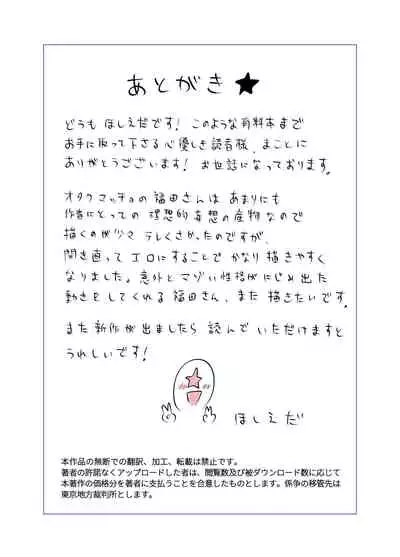 あとがき★
どうも ほしえだです! このような有料本まで
お手に取って下さる心優しき読者様、まことに
ありがとうございます! お世話になっております。
オタクマッチョの福田さんは あまりにも
作者にとっての 理想的妄想の産物なので
描くのが少々 テレくさかったのですが、
開き直って エロにすることで かなり描きやすく
なりました。意外とマゾい性格がにじみ出た
動きをしてくれる福田さん、また描きたいです。
また新作が出ましたら 読んで いただけますと
うれしいです!
ほしえだ
本作品の無断での翻訳、加工、転載は禁止です。
著者の許諾なくアップロードした者は、閲覧数及び被ダウンロード数に応じて
本著作の価格分を著者に支払うことを合意したものとします。係争の移管先は
東京地方裁判所とします。